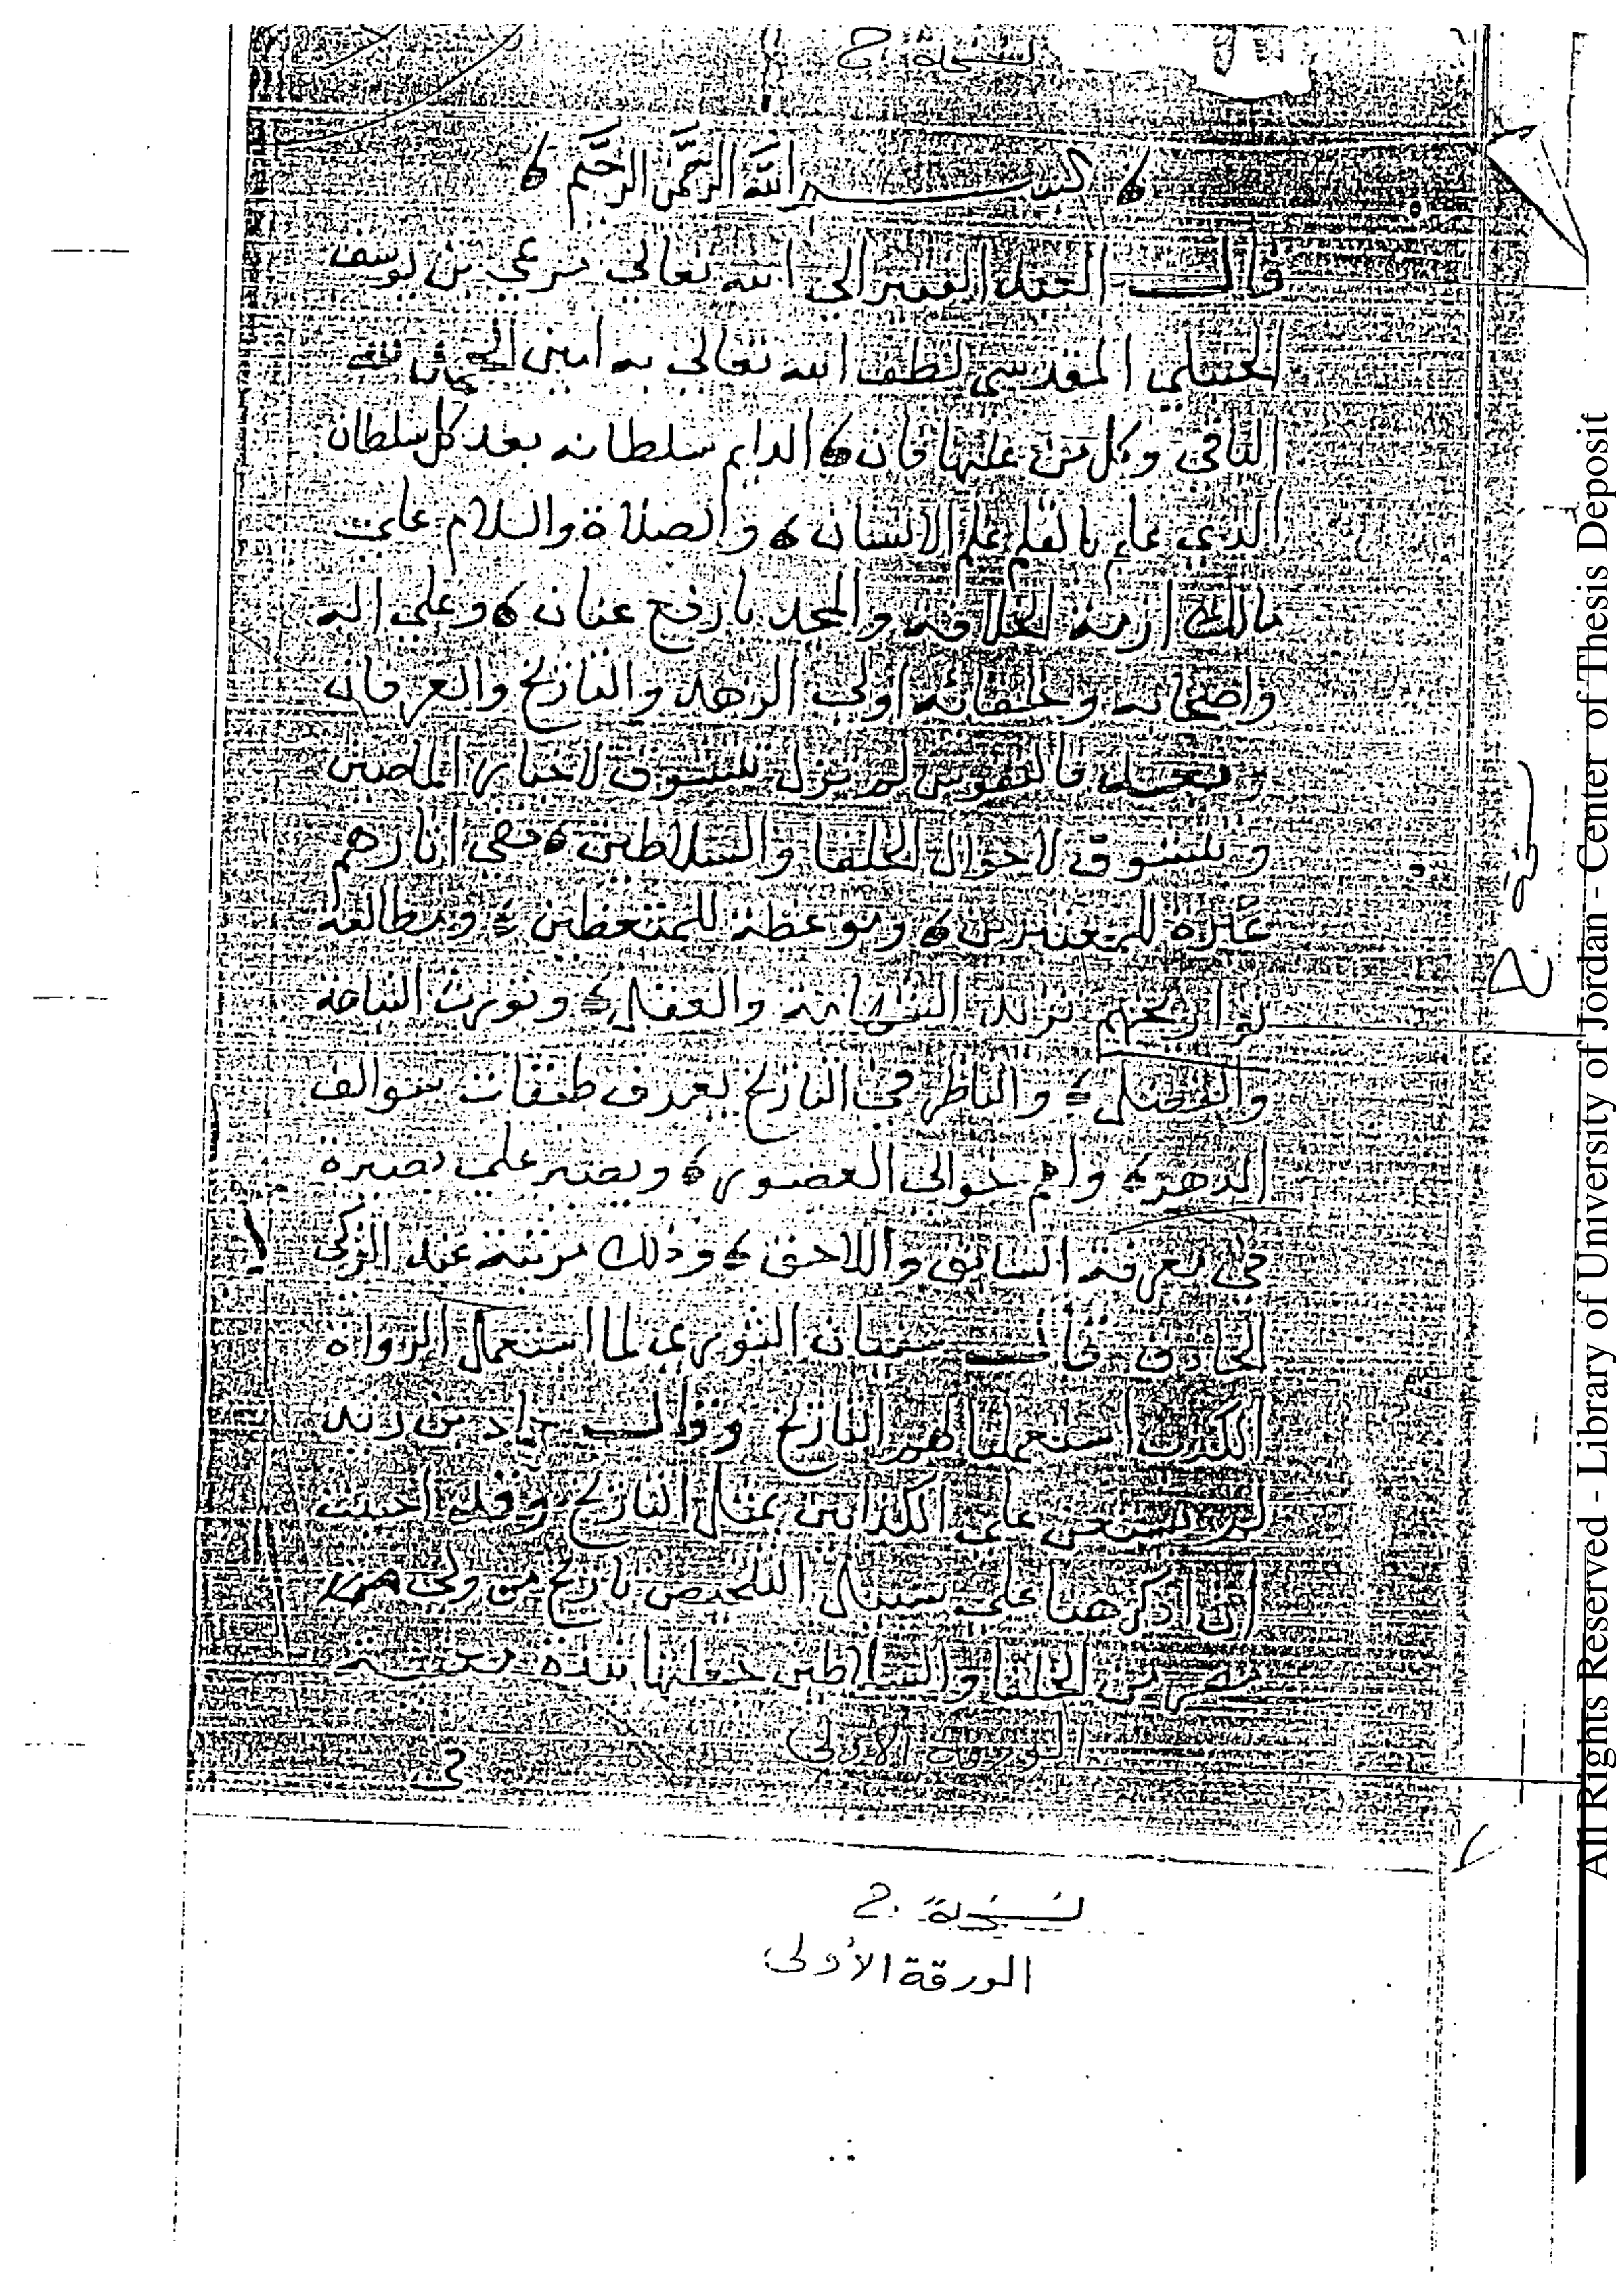 نسخة ح
بسم الله الرحمن الرحيم
قال العبد الفقير الى الله تعالى مرعي بن يوسف
الحنبلي المقدسي لطف الله تعالى به امين الحمد لله
الباقي وكل من عليها فان الدايم سلطانه بعد كل سلطان
الذي علم بالقلم علم الانسان والصلاة والسلام على
مالك ازمة الخلافة والمجد بارفع عنان وعلى اله
واصحابه وخلفائه اولي الزهد والتاريخ والعرفان
وبعد فالنفوس لم تزل تتشوق لاخبار الماضين
وتتشوق لاحوال الخلفا والسلاطين ففي اثارهم
عبرة للمعتبرين وموعظة للمتعظين ومطالعة
تواريخهم تزيد والعقل وتورث النباهة
والفضل والناظر في التاريخ يعرف طبقات سوالف
الدهر وامم خوالي العصور ويصير على بصيرة
في معرفة السابق واللاحق وذلك مرتبة عند الزكي
الحاذق قال سفيان الثوري لما استعمل الرواة
الكذب استعملنا لهم التاريخ وقال حماد بن زيد
لم نستعن على الكذابين بمثل التاريخ وقد احببت
ان اذكر هنا على سبيل التلخيص تاريخ من ولي
مصر من الخلفا والسلاطين جعلتها نبذة
الورقة الأولى
في
نسخة ح
الورقة الأولى
نسخة ح
All Rights Reserved - Library of University of Jordan - Center of Thesis Deposit